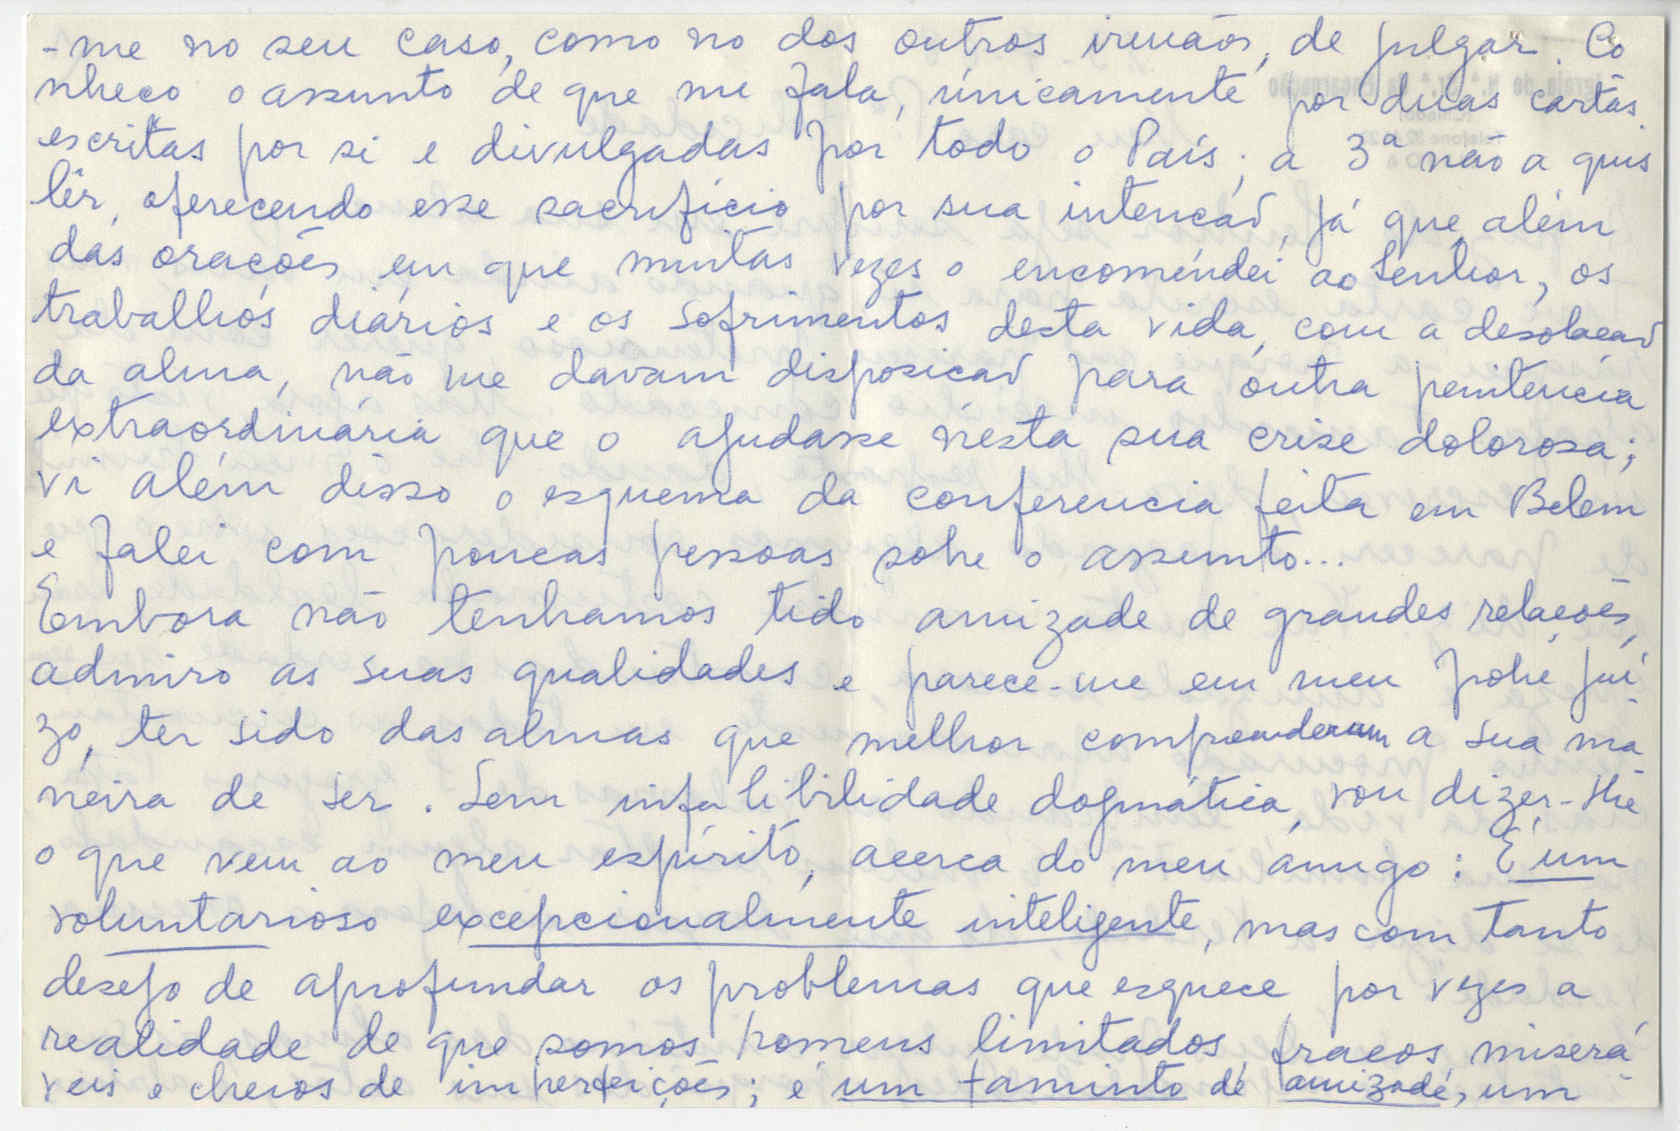 -me no seu caso, como no dos outros irmãos, de julgar. Co
nheço o assunto de que me fala, únicamente por duas cartas
escritas por si e divulgadas por todo o País; a 3ª não a quis
lêr, oferecendo esse sacrifício por sua intenção, já que, além
das orações em que muitas vezes o encomendei ao Senhor, os
trabalhos diários e os sofrimentos desta vida, com a desolação
da alma, não me davam disposição para outra penitencia
extraordinária que o ajudasse nesta sua crise dolorosa;
vi além disso o esquema da conferencia feita em Belem
e falei com poucas pessoas sobre o assunto...
Embora não tenhamos tido amizade de grandes relações,
admiro as suas qualidades e parece-me em meu pobre juí
zo, ter sido das almas que melhor compreenderam a sua ma
neira de ser. Sem infalibilidade dogmática, vou dizer-lhe
o que vem ao meu espírito, acerca do meu amigo: É um
voluntarioso excepcionalmente inteligente, mas com tanto
desejo de aprofundar os problemas que esquece por vezes a
realidade de que somos homens limitados, fracos, miserá
veis e cheios de imperfeições; é um faminto de amizade, um